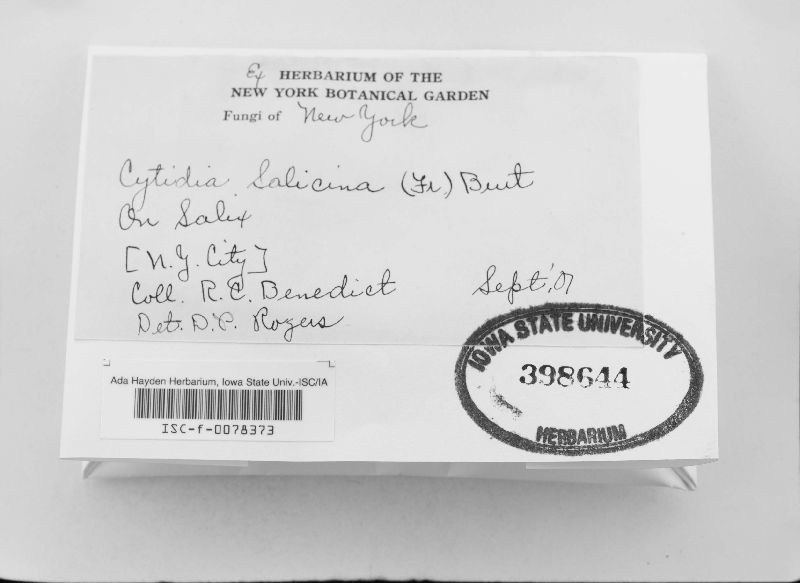 Ex HERBARIUM OF THE
NEW YORK BOTANICAL GARDEN
Fungi of New York
Cytidia Salicina (Fr.) Burt
On Salix
[N.Y. City]
Coll. R.C. Benedict Sept '07
Det. D.P. Rogers
IOWA STATE UNIVERSITY
398644
HERBARIUM
Ada Hayden Herbarium, Iowa State Univ.-ISC/IA
ISC-f-0078373